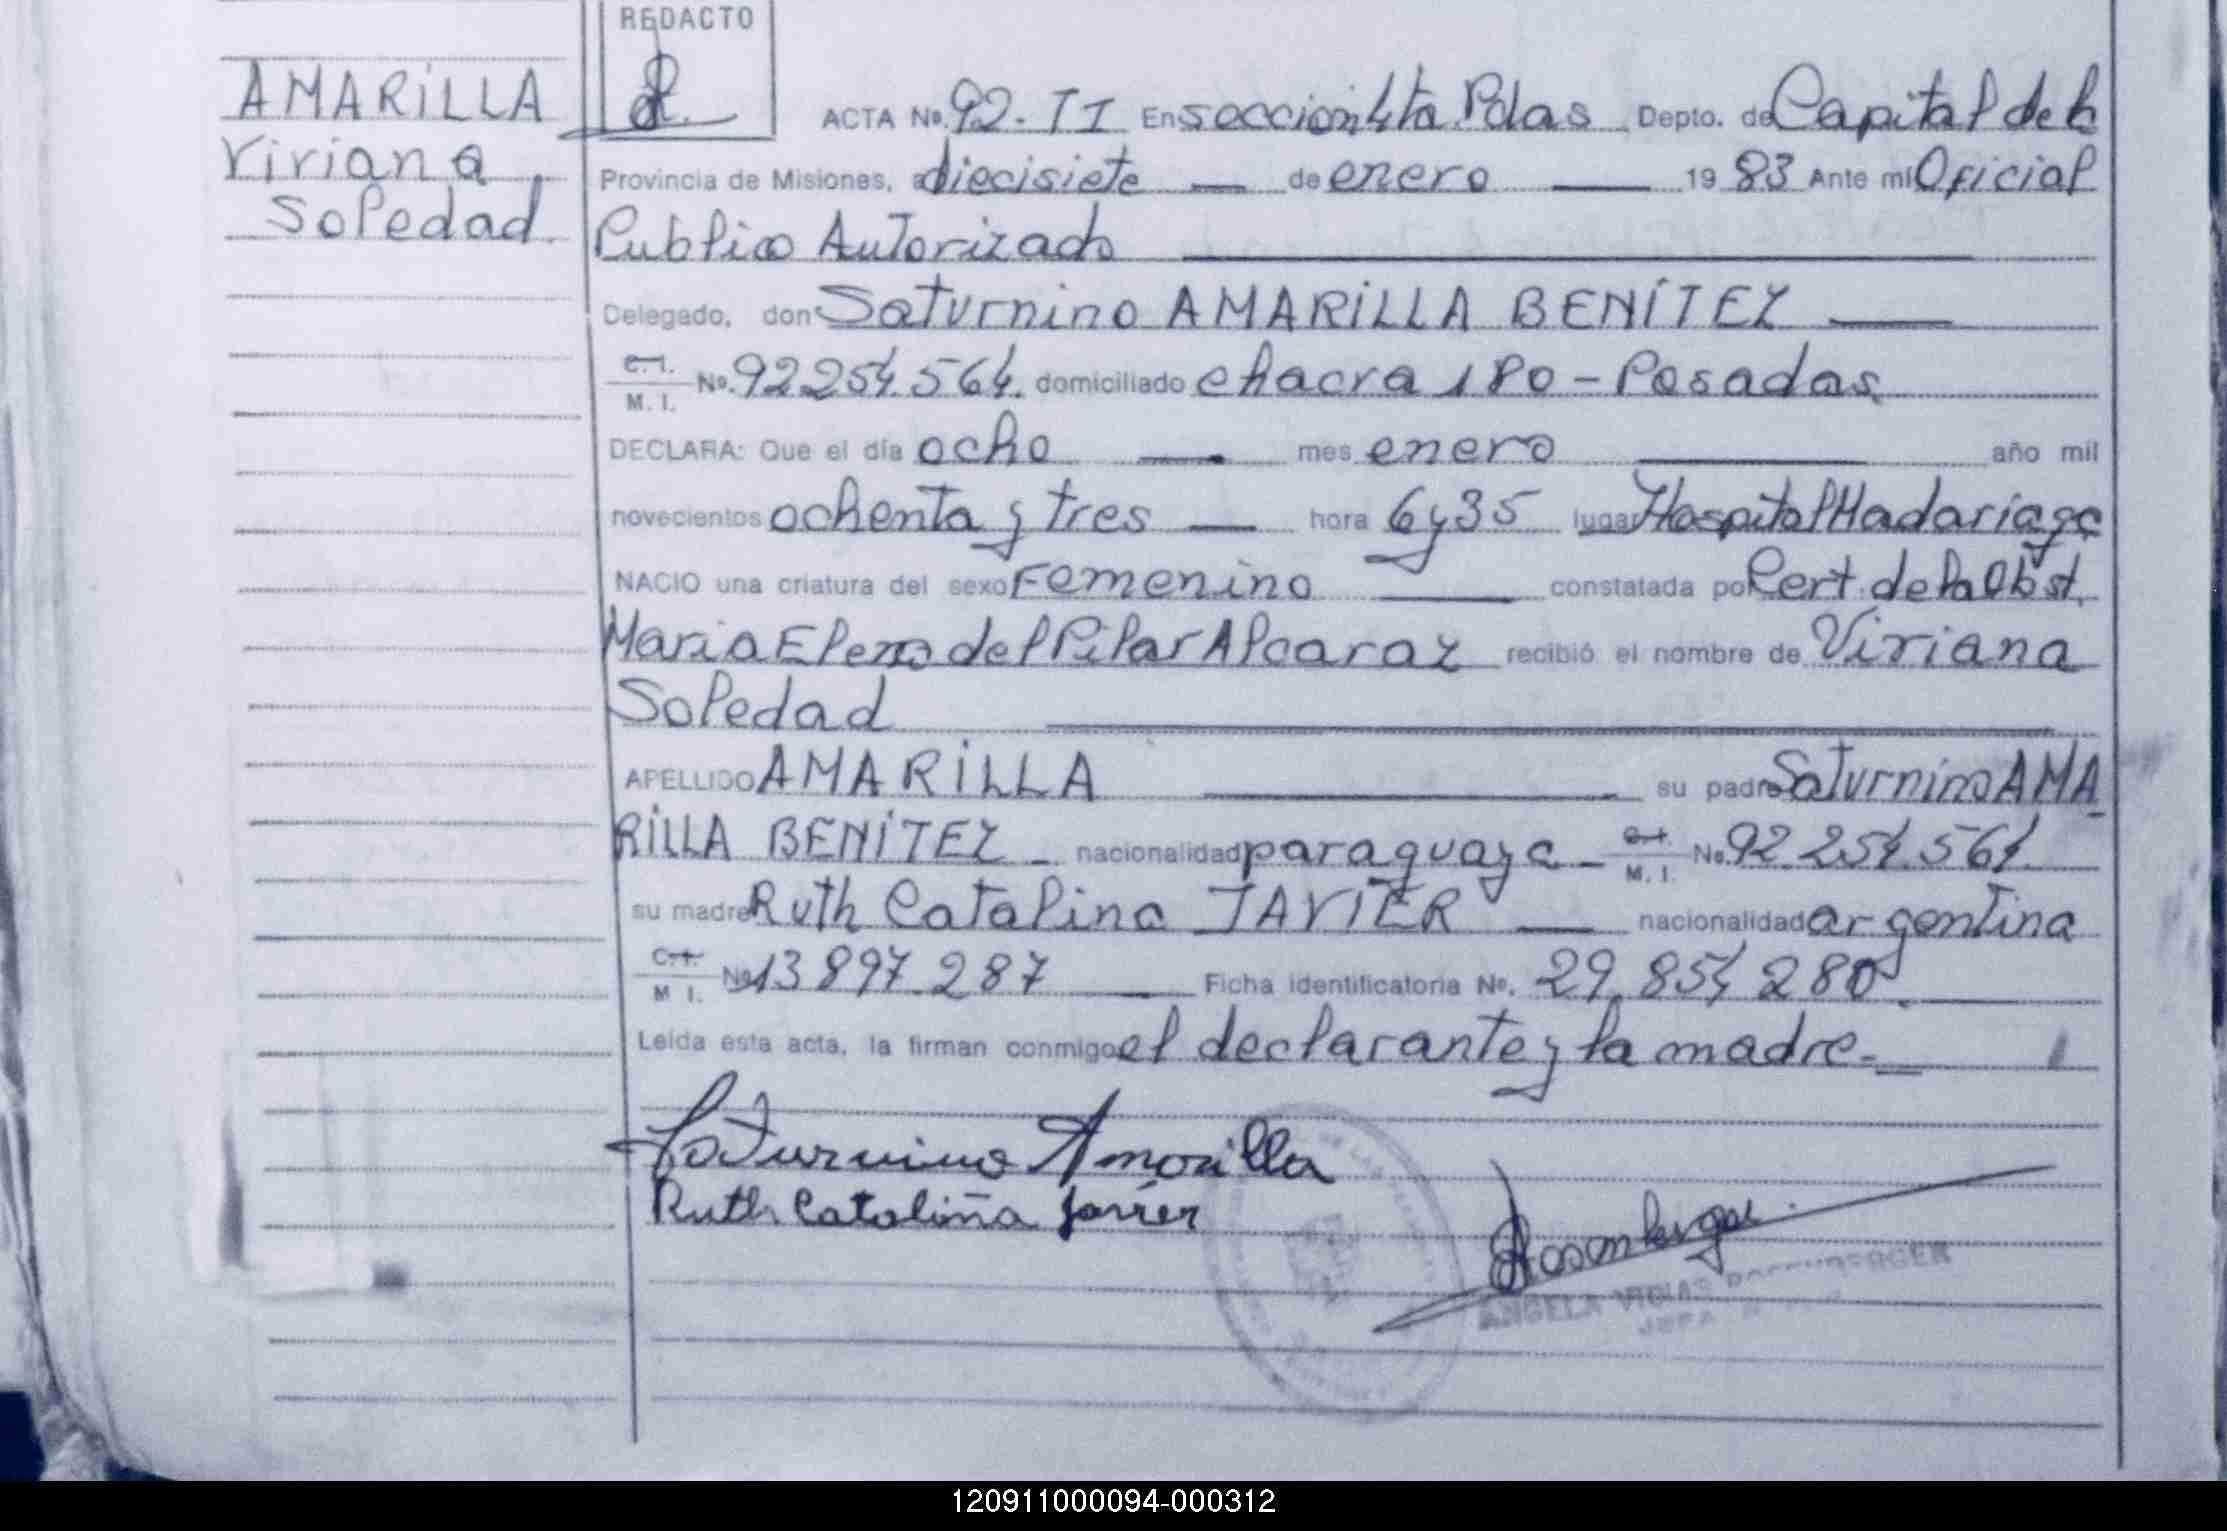 REDACTO
AMARILLA
Viviana
Soledad.
ACTA No. 92-II En seccion 4ta. Pdas Depto. de Capital de la
Provincia de Misiones, a diecisiete — de enero — 1983 Ante mí Oficial
Publico Autorizado
Delegado, don Saturnino AMARILLA BENÍTEZ
C. I.
M. I. No. 92254564. domiciliado chacra 180 - Posadas.
DECLARA: Que el día ocho — mes enero — año mil
novecientos ochenta y tres — hora 6y35 lugar Hospital Madariaga
NACIO una criatura del sexo Femenino — constatada por Cert. de la Obst.
Maria Elena del Pilar Alcaraz recibió el nombre de Viviana
Soledad
APELLIDO AMARILLA — su padre Saturnino AMA
RILLA BENÍTEZ - nacionalidad paraguaya - C. I.
M. I. No. 92 254 564
su madre Ruth Catalina JAVIER — nacionalidad argentina
C. I.
M I. No 13 897 287 — Ficha identificatoria No. 29.854 280.
Leída esta acta, la firman conmigo el declarante y la madre.-
Saturnino Amarilla
Ruth Cataliña Javier
Rosenberger
ANGELA ROSENBERGER
JEFA
120911000094-000312